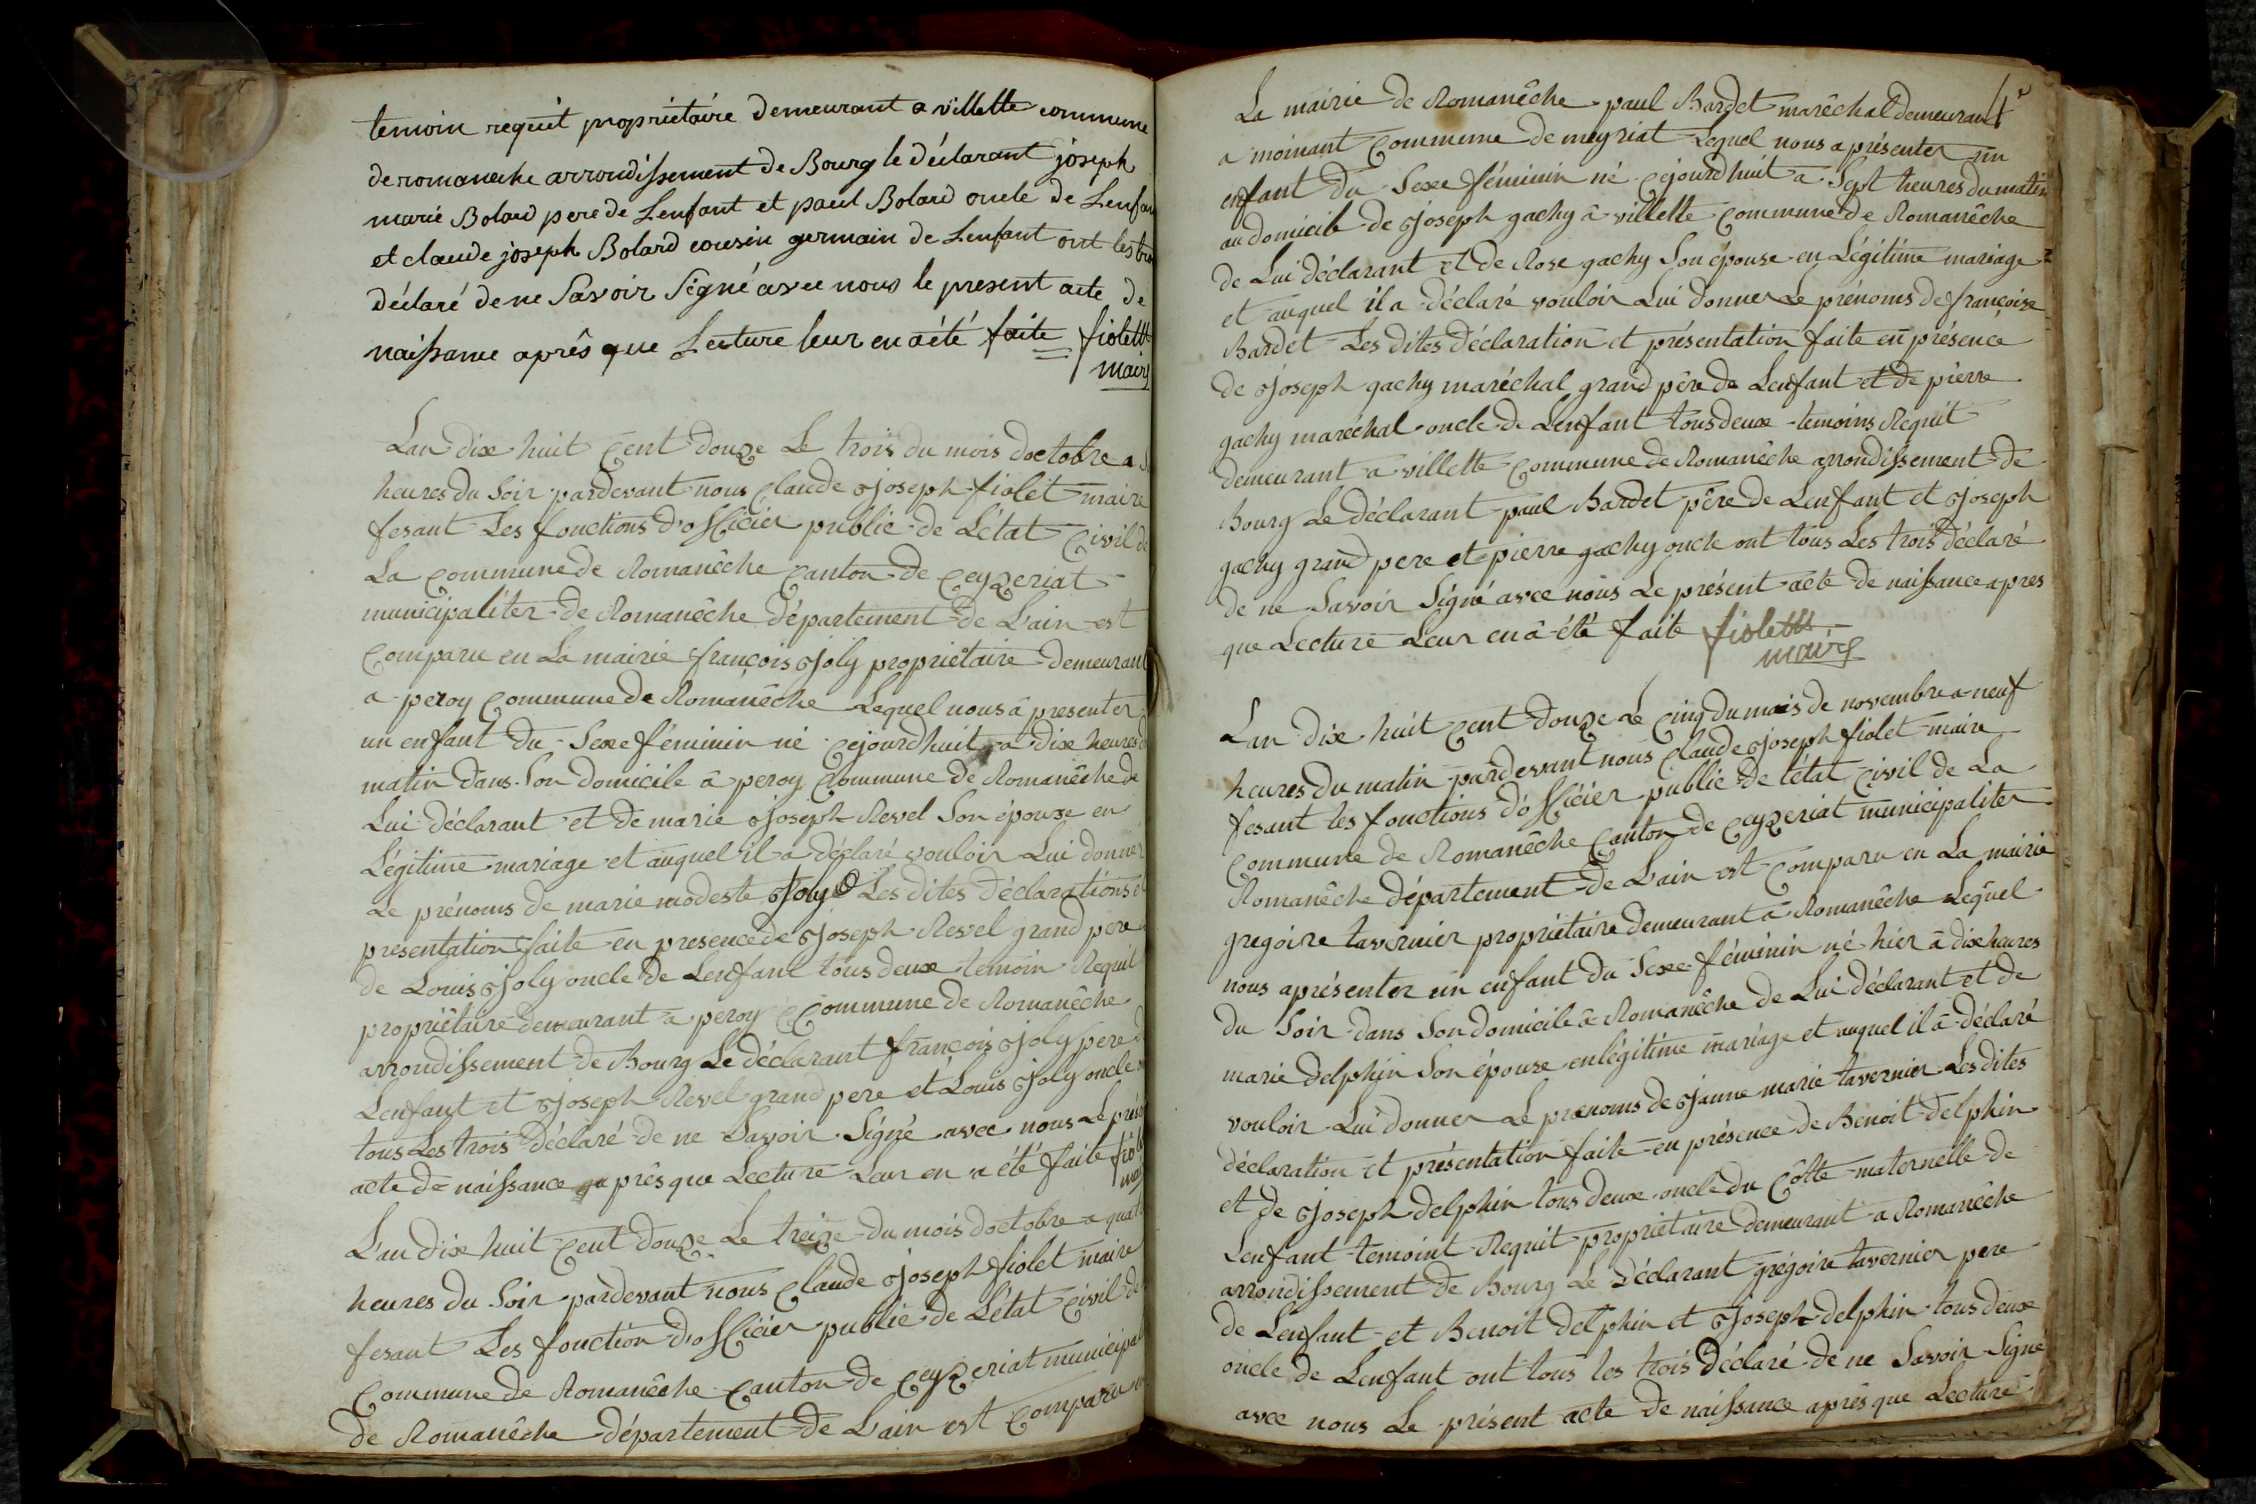 temoin requit propriétaire demeurant a villette commune
de romaneche arrondissement de Bourg le déclarant joseph
marie Bolard pere de Lenfant et paul Bolard oncle de Lenfan
et claude joseph Bolard cousin germain de Lenfant ont les tro
déclaré de ne Savoir Signé avec nous le present acte de
naissance après que Lecture leur en a été faite fiolett
maire
Lan dixe huit Cent douze Le trois du mois doctobre a
heures du Soir pardevant nous Claude joseph fiolet maire
fesant Les fonctions d'officier public de Létat Civil de
La Commune de Romanêche Canton de Ceyzeriat
municipaliter de Romanêche département de Lain est
Comparu en La mairie françois joly propriétaire demeurant
a peroy Commune de Romanêche Lequel nous à presenter
un enfant du Sexe féminin né cejourdhuit a dixe heures d
matin dans Son domicile â peroy Commune de Romanêche de
Lui déclarant et de marie joseph Revel Son épouse en
Légitime mariage et auquel il a déclaré vouloir Lui donner
Le prénoms de marie modeste Joly Les dites déclarations et
presentation faite en presence de joseph Revel grand pere
de Louis joly oncle de Lenfant tous deux temoin Requit
propriétaire demeurant a peroy Commune de Romanêche
arrondissement de Bourg Le déclarant françois joly pere d
Lenfant et joseph Revel grand pere et Louis joly oncle
tous Les trois déclaré de ne Savoir Signé avec nous Le prés
acte de naissance après que Lecture Leur en a été faite fiol
mai
L'an dixe huit Cent douze Le treize du mois doctobre a quat
heures du Soir pardevant nous Claude joseph fiolet maire
fesant Les fonction d'officier public de Létat Civil de
Commune de Romanêche Canton de Ceyzeriat municipal
de Romanêche département de Lain est Comparu
La mairie de Romanêche paul Bardet marêchal demeurant
a moinant Commune de meyriat Lequel nous a présenter un
enfant du Sexe féminin né cejourdhuit a Sept heures du matin
au domicile de joseph gachy â villette Commune de Romanêche
de Lui déclarant et de Rose gachy Son épouse en Légitime mariage
et auquel il a déclaré vouloir Lui donner Le prénoms de françoise
Bardet Les dites déclaration et présentation faite en présence
de joseph gachy maréchal grand père de Lenfant et de pierre
gachy maréchal oncle de Lenfant tous deux temoins Requit
demeurant a villette Commune de Romanêche arrondissement de
Bourg Le déclarant paul Bardet père de Lenfant et joseph
gachy grand pere et pierre gachy oncle ont tous Les trois déclaré
de ne Savoir Signé avec nous Le présent acte de naissance apres
que Lecture Leur en â été faite fiolett
maire
Lan dixe huit Cent douze Le Cinq du mois de novembre a neuf
heures du matin pardevant nous Claude joseph fiolet maire
fesant les fonctions d'officier public de L'état Civil de La
Commune de Romanêche Canton de Ceyzeriat municipaliter
Romanêche département de Lain est Comparu en La mairie
gregoire tavernier propriétaire demeurant â Romanêche Lequel
nous a présenter un enfant du Sexe féminin né hier â dixe heures
du Soir dans Son domicile â Romanêche de Lui déclarant et de
marie delphin Son épouse en légitime mariage et auquel il â déclaré
vouloir Lui donner Le prenoms de jeanne marie tavernier Les dites
déclaration et présentation faite en présence de Benoit delphin
et de joseph delphin tous deux oncle du Côtte maternelle de
Lenfant temoint Requit propriétaire demeurant a Romanêche
arrondissement de Bourg Le déclarant grégoire tavernier pere
de Lenfant et Benoit delphin et joseph delphin tous deux
oncle de Lenfant ont tous les trois déclaré de ne Savoir Signé
avec nous Le présent acte de naissance après que Lecture